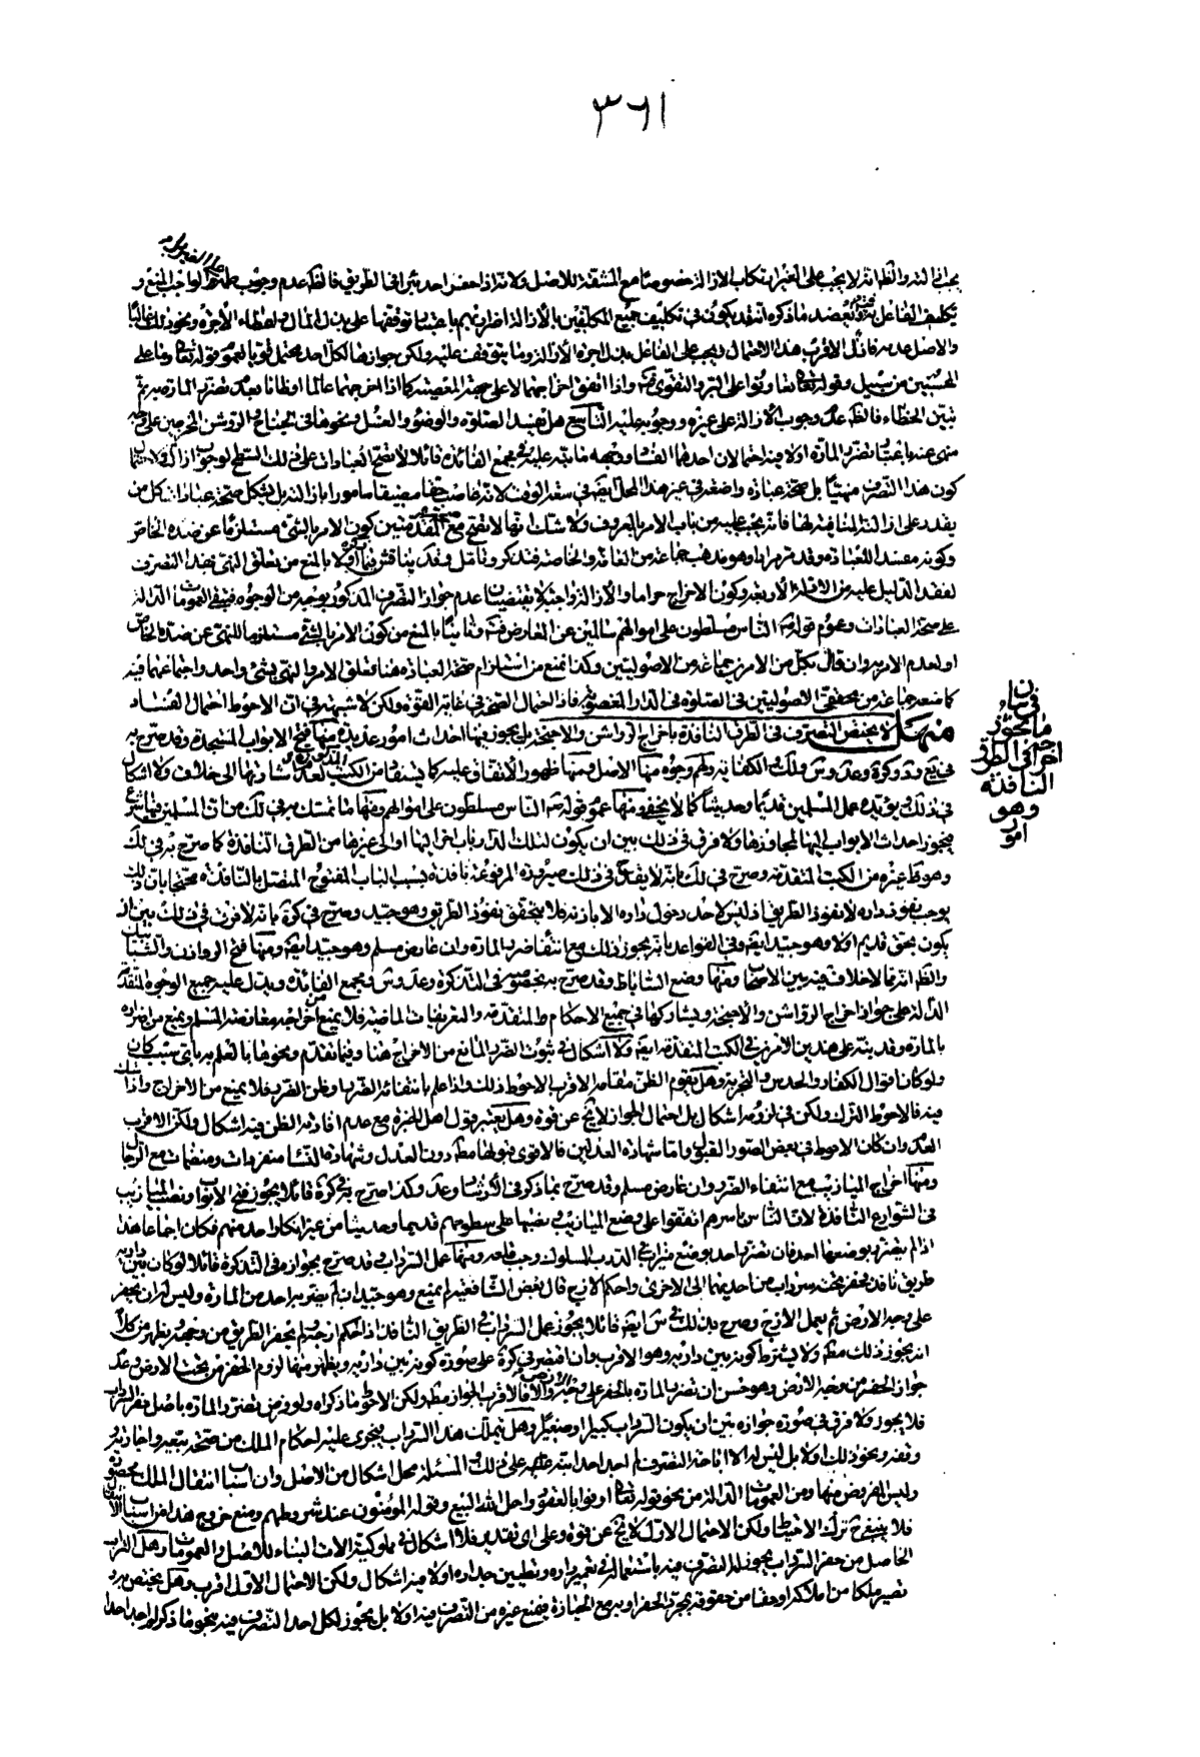 ٣٦١
لا يجب على الغير ارتكاب الازالة خصوصا مع المشقة للاصل ولانه اذا حفر احد بئرا في الطريق فالظ عدم وجوب طمها
تكليف الفاعل ويعضد ما ذكره انه قد يكون في تكليف جميع المكلفين بالازالة اضرار بهم باعتبار توقفها على بذل المال واعطاء الاجرة ونحو ذلك غالبا
والاصل عدمه فاذن الاقرب هذا الاحتمال ويجب على الفاعل بذل اجرة الازالة وما يتوقف عليه ولكن جوازها لكل احد محتمل قويا لعموم قوله تعالى وما على
المحسنين من سبيل وقوله تعالى تعاونوا على البر والتقوى واذا اتفق اخراجهما لا على جهة المعصية كما اذا اخرجهما عالما او ظانا بعدم تضرر المارة به ثم
تبين الخطاء فالظ عدم وجوب الازالة على غيره ووجوبه عليه التاسع هل تفسد الصلوة والوضوء والغسل ونحوها في الجناح والروشن المحرمين على وجه
منهى عنه باعتبار تضرر المارة اولا فيه احتمالان احدهما الفساد وجهه ما نبه عليه في مجمع الفائدة قائلا لا تصح العبادات على ذلك السطح لوجوب ازالته
كون هذا التصرف منهيا بل صحة عبادة واضعه في غير هذا المحل ايضا في سعة الوقت لانه غاصب حقا مضيقا مامورا بازالته بل يشكل صحة عبادات كل من
يقدر على ازالته المنافية لها فانه يجب عليه من باب الامر بالمعروف ولا شك انها لا تصح مع كون الامر بالشئ مستلزما عن ضده الخاص
وكونه مفسدا للعبادة وقد مر مرارا وهو مذهب جماعة من العامة والخاصة فتذكر وتامل وقد يناقش فيما ذكره اولا بالمنع من تعلق النهى بهذا التصرف
لفقد الدليل عليه من الادلة الاربعة وكون الاخراج حراما والازالة واجبة لا يقتضيان عدم جواز التصرف المذكور بوجه من الوجوه فيبقى العمومات الدالة
على صحة العبادات وعموم قوله الناس مسلطون على اموالهم سالمين عن المعارض وثانيا بالمنع من كون الامر بالشئ مستلزما للنهى عن ضده الخاص
او لعدم الامر به وان قال بكل من الامرين جماعة من الاصوليين وكذا نمنع من استلزام صحة العبادة هنا تعلق الامر والنهى بشئ واحد واجتماعهما فيه
كما منعه جماعة من محققى الاصوليين في الصلوة في الدار المغصوبة فاذن احتمال الصحة في غاية القوة ولكن لا شبهة في ان الاحوط احتمال الفساد
منهل لا يختص التصرف في الطرق النافذة باخراج الرواشن والاجنحة بل يجوز فيها احداث امور عديدة منها فتح الابواب المستجدة وقد صرح به
في يع ود وكرة وعد وس ولك والكفاية ولهم وجوه منها الاصل ومنها ظهور الاتفاق عليه كما يستفاد من الكتب لعدم اشارتها الى خلاف ولا اشكال
في ذلك ويؤيده عمل المسلمين قديما وحديثا كما لا يخفى ومنها عموم قوله الناس مسلطون على اموالهم ومنها ما تمسك به في لك من ان المسلمين
فيجوز احداث الابواب اليها لمجاوزها ولا فرق في ذلك بين ان يكون لتلك الدار باب اخر اليها او الى غيرها من الطرق النافذة كما صرح به في لك
وهو ظ غيره من الكتب المتقدمة وصرح في لك بانه لا يقدح في ذلك صيرورة المرفوعة نافذة بسبب الباب المفتوح المتصل بالنافذة محتجا بان ذلك
يوجب نفوذ داره لا نفوذ الطريق اذ ليس لاحد دخول داره الا باذنه فلا يتحقق نفوذ الطريق وهو جيد وصرح في كرة بانه لا فرق في ذلك بين ان
يكون بحق قديم اولا وهو جيد ايضا وفي القواعد بانه يجوز ذلك مع انتفاء ضرر المارة وان عارض مسلم وهو جيد ايضا ومنها فتح الروازن والشبابيك
والظ انه مما لا خلاف فيه بين الاصحاب ومنها وضع الساباط وقد صرح به بخصوصه في التذكرة وعد وس ومجمع الفائدة ويدل عليه جميع الوجوه المتقدمة
الدالة على جواز اخراج الرواشن والاجنحة ويشاركها في جميع الاحكام المتقدمة والتفريعات الماضية فلا يمنع من اخراجه معارضة المسلم ويمنع من اضراره
بالمارة وقد نبه على هذين الامرين في الكتب المتقدمة ايضا ولا اشكال في ثبوت الضرر المانع من الاخراج هنا وفيما تقدم ونحوها بالعلم به باى سبب كان
ولو كان اقوال الكفار والحدس والتجربة وهل يقوم الظن مقامه الاقرب الاحوط ذلك واذا علم بانتفاء الضرر او ظن الضرر فلا يمنع من الاخراج واذا شك
فيه فالاحوط الترك ولكن في لزومه اشكال بل احتمال الجواز لا يخ عن قوة وهل يعتبر قول اهل الخبرة مع عدم افادته الظن فيه اشكال ولكن الاقرب
العدم وان كان الاحوط في بعض الصور القبول واما شهادة العدلين فالاقوى قبولها مط دون العدل وشهادة النساء منفردات ومنضمات مع الرجال
ومنها اخراج الميازيب مع انتفاء الضرر وان عارض مسلم وقد صرح بما ذكر في الارشاد وعد وكذا صرح به في كرة قائلا يجوز فتح الابواب ونصب الميازيب
في الشوارع النافذة لان الناس باسرهم اتفقوا على وضع الميازيب ونصبها على سطوحهم قديما وحديثا من غير انكار احد منهم فكان اجماعا هذا
اذا لم يضر بوضعها احد فان تضرر احد بوضع ميزاب في الدرب المسلوك وجب قلعه ومنها عمل السرداب وقد صرح بجوازه في التذكرة قائلا لو كان بين داريه
طريق نافذ فحفر تحته سردابا من احديهما الى الاخرى واحكم الازج قال بعض الشافعية لم يمنع وهو جيد ان لم يضر به احد من المارة وليس له ان يحفر
على وجه الارض ثم يعمل الازج وصرح بذلك في س ايضا قائلا يجوز عمل السرداب في الطريق النافذ اذا احكم ازجه ولم يحفر الطريق من وجهه ويظهر من كلا
انه يجوز ذلك مط ولا يشترط كونه بين داريه وهو الاقرب وان اقتصر في كرة على صورة كونه بين داريه ويظهر منهما لزوم الحفر من تحت الارض وعدم
جواز الحفر من وجه الارض وهو حسن ان تضرر المارة بالحفر على وجه الارض والا فالاقرب الجواز مط ولكن الاحوط ما ذكراه ولو فرض تضرر المارة باصل حفر السرداب
فلا يجوز ولا فرق في صورة جوازه بين ان يكون السرداب كبيرا او صغيرا وهل يتملك هذا السرداب فيجرى عليه احكام الملك من صحة بيعه واجارته
وقفه ونحو ذلك اولا بل ليس له الا اباحة التصرف لم اجد احدا نبه على ذلك والمسئلة محل اشكال من الاصل وان اسباب انتقال الملك محصورة
وليس المفروض منها ومن العمومات الدالة من نحو قوله تعالى اوفوا بالعقود واحل الله البيع وقوله المؤمنون عند شروطهم ومنع خروج هذا من اسباب
فلا ينبغى ترك الاحتياط ولكن الاحتمال الاول لا يخ عن قوة وعلى اى تقدير فلا اشكال في مملوكية آلات البناء للاصل والعمومات وهل التراب
الحاصل من حفر السرداب يجوز له التصرف فيه باستعماله في تعمير داره وتطيين جداره اولا فيه اشكال ولكن الاحتمال الاول اقرب وهل يختص به و
يصير ملكا من املاكه او حقا من حقوقه بمجرد الحفر او به مع الحيازة فيمنع غيره من التصرف فيه اولا بل يجوز لكل احد التصرف فيه بنحو ما ذكر لم اجد احدا
في بيان
ما يجوز
اخراجه في الطرق
النافذة
وهو
امور